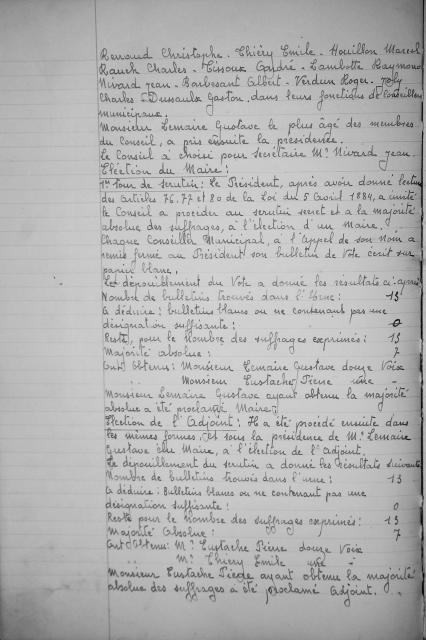 Renraud Christophe. Thiéry Emile. Houillon Marcel
Rauch Charles - Tisoux André - Lambotte Raymond
Nivard Jean - Barbesant Albert - Verdun Roger - Joly
Charles - Dussaulx Gaston, dans leurs fonctions de Conseillers
municipaux.
Monsieur Lemaire Gustave le plus âgé des membres
du Conseil, a pris ensuite la présidence.
Le Conseil a choisi pour secrétaire Mr Nivard Jean
Election du Maire:
1er tour de scrutin: Le Président, après avoir donné lecture
des articles 76. 77 et 80 de la Loi du 5 avril 1884, a invité
le Conseil à procéder au scrutin secret et à la majorité
absolue des suffrages, à l'élection d'un Maire.
Chaque Conseiller Municipal, à l'Appel de son Nom a
remis fermé au Président son bulletin de Vote écrit sur
papier blanc.
Le dépouillement du Vote a donné les résultats ci-après
Nombre de bulletins trouvés dans l'Urne: 13
A déduire: bulletins blancs ou ne contenant pas une
désignation suffisante: 0
Reste, pour le Nombre des suffrages exprimés: 13
Majorité absolue: 7
Ont Obtenus: Monsieur Lemaire Gustave douze Voix
" Monsieur Eustache Pierre une -
Monsieur Lemaire Gustave ayant obtenu la majorité
absolue a été proclamé Maire.
Election de l'Adjoint: Il a été procédé ensuite dans
les mêmes formes, et sous la présidence de Mr Lemaire
Gustave élu Maire, à l'élection de l'Adjoint.
Le dépouillement du scrutin a donné les Résultats suivants
Nombre de bulletins trouvés dans l'urne: 13
A déduire: Bulletins blancs ou ne contenant pas une
désignation suffisante: 0
Reste pour le Nombre des suffrages exprimés: 13
Majorité Absolue: 7
Ont Obtenu: Mr Eustache Pierre douze Voix
" Mr Thiéry Emile une "
Monsieur Eustache Pierre ayant obtenu la majorité
absolue des suffrages a été proclamé Adjoint.